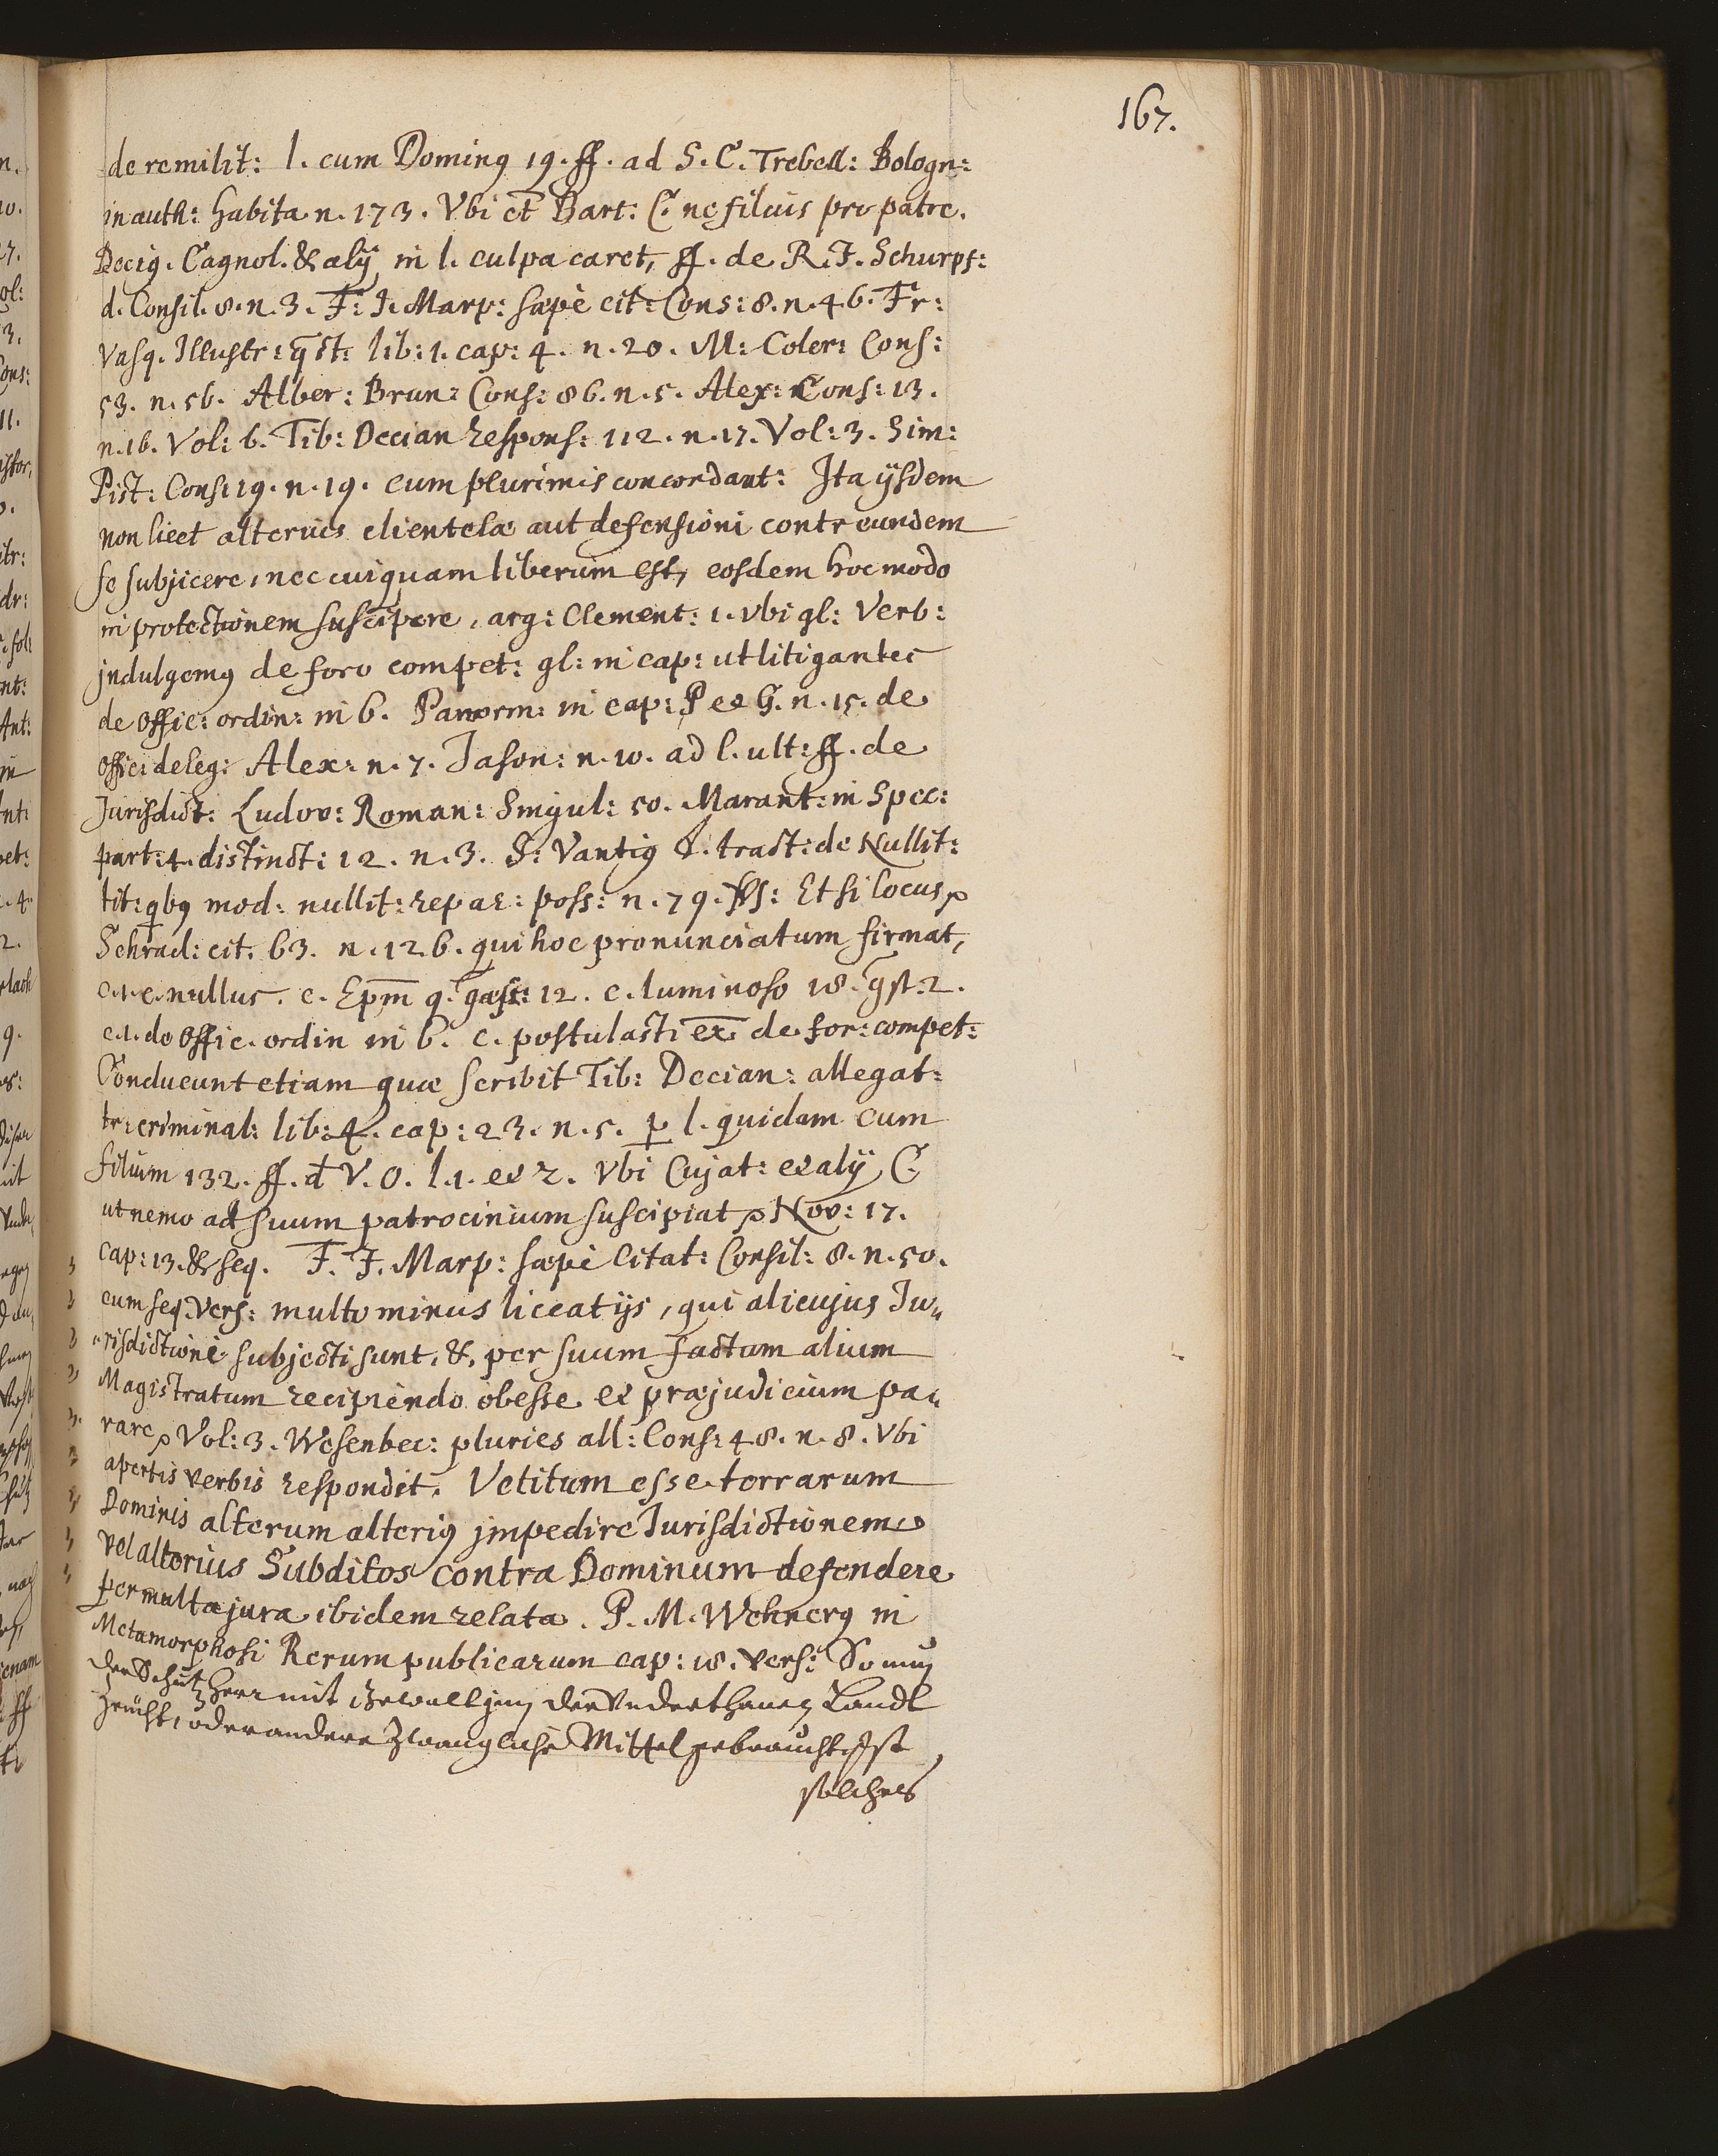 167.
de re milit: l. cum Dominꝰ 19. ff. ad S. C. Trebell: Bologn:
in auth: habita n. 173. Vbi et Bart: C. ne filius pro patre.
Deciꝰ. Cagnol. & alÿ in l. culpa caret, ff. de R. J. Schurpf:
d. Consil. 8. n. 3. F: J. Marp: sæpè cit: Cons: 8. n. 46. Fr:
Vasq. Illustr: qst: lib: 1. cap: 4. n. 20. M: Coler: Cons:
53. n. 56. Alber: Brun: Cons: 86. n. 5. Alex: Cons: 13.
n. 16. Vol: 6. Tib: Decian respons: 112. n. 17. Vol: 3. Sim:
Pist: Cons: 19. n. 19. cum plurimis concordant: Ita ÿsdem
non licet alterius clientelæ aut defensioni contr eundem
se subjicere, nec cuiquam liberum est, eosdem hoc modo
in protectionem suscipere, arg: Clement: 1. vbi gl: Verb:
jndulgemꝰ de foro compet: gl: in cap: ut litigantes
de offic: ordin: in 6. Panorm: in cap: P et G. n. 15. de
offic: deleg: Alex: n. 7. Jason: n. 10. ad l. ult: ff. de
Jurisdict: Ludov: Roman: Singul: 50. Marant: in Spec:
part: 4. distinct: 12. n. 3. S: Vantiꝰ tract: de Nullit:
tit: qbꝰ mod: nullit: repar: poss: n. 79. Et si locus
Schrad: cit. 63. n. 126. qui hoc pronunciatum firmat,
c. 1. c. nullus. c. Epm 9. 12. c. luminoso 18. qst: 2.
c. 1. de offic. ordin in 6. c. postulasti ex de for: compet:
Conducunt etiam quæ scribit Tib: Decian: allegat:
tr: criminal: lib: 4. cap: 23. n. 5. p l. quidam cum
filium 132. ff. d V. O. l. 1. et 2. Vbi Cujat: et alÿ C.
ut nemo ad suum patrocinium suscipiat Nov: 17.
cap: 13. & seq. F. J. Marp: sæpè citat: Consil: 8. n. 50.
cum seq. vers: multo minus liceat ijs, qui alicujus Ju„
„risdictioni subjecti sunt, &, per suum factum alium
Magistratum recipiendo obesse et præjudicium pa„
rare Vol: 3. Wesenbec: pluries all: Cons: 48. n. 8. Vbi
apertis verbis respondit, Vetitum esse terrarum
Dominis alterum alteriꝰ jmpedire Jurisdictionem
vel alterius Subditos contra Dominum defendere
per multa jura ibidem relata. P. M. Wehnerꝰ in
Metamorphosi Rerum publicarum cap: 18. vers: So nun
der Schutz Herr mit Gewalt jnn der Vnderthanen Landt
Zeucht, oder andere Zwangliche Mittel gebraucht, Ist
solches